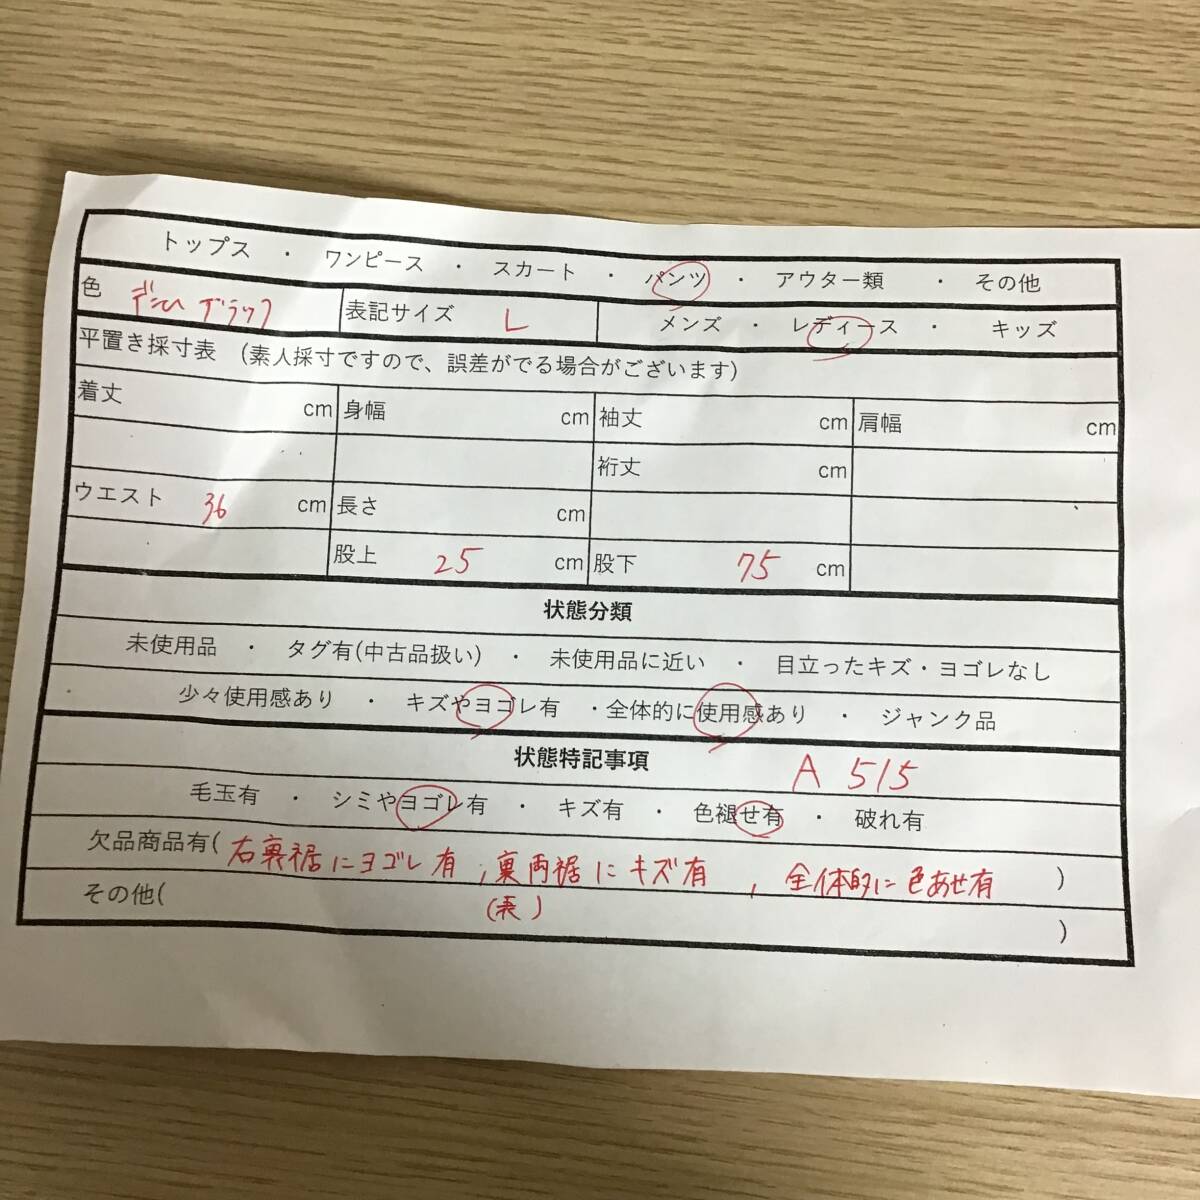 トップス ・ ワンピース ・ スカート ・ パンツ ・ アウター類 ・ その他
色 デニム ブラック 表記サイズ L メンズ ・ レディース ・ キッズ
平置き採寸表 (素人採寸ですので、誤差がでる場合がございます)
着丈 cm 身幅 cm 袖丈 cm 肩幅 cm
裄丈 cm
ウエスト 36 cm 長さ cm
股上 25 cm 股下 75 cm
状態分類
未使用品 ・ タグ有(中古品扱い) ・ 未使用品に近い ・ 目立ったキズ・ヨゴレなし
少々使用感あり ・ キズやヨゴレ有 ・全体的に使用感あり ・ ジャンク品
状態特記事項 A 515
毛玉有 ・ シミやヨゴレ有 ・ キズ有 ・ 色褪せ有 ・ 破れ有
欠品商品有( 右裏裾にヨゴレ有 , 裏両裾にキズ有 , 全体的に色あせ有 )
その他( (表) )